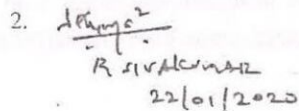 2.
R SIVAKUMAR
22/01/2020